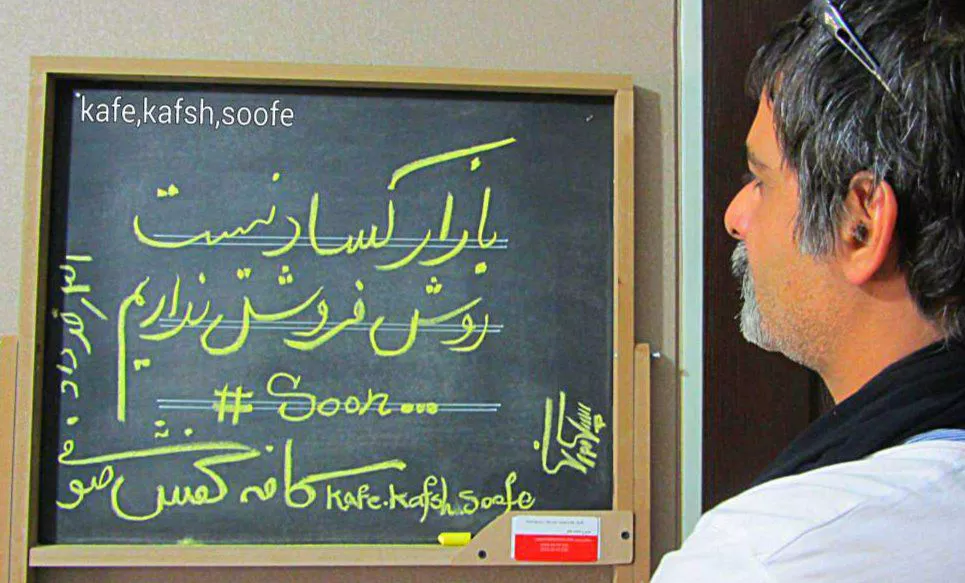 kafe,kafsh,soofe
بازار کساد نیست
روش فروش نداریم
# Soon...
کافه کفش صوفی
kafe.kafsh.soofe